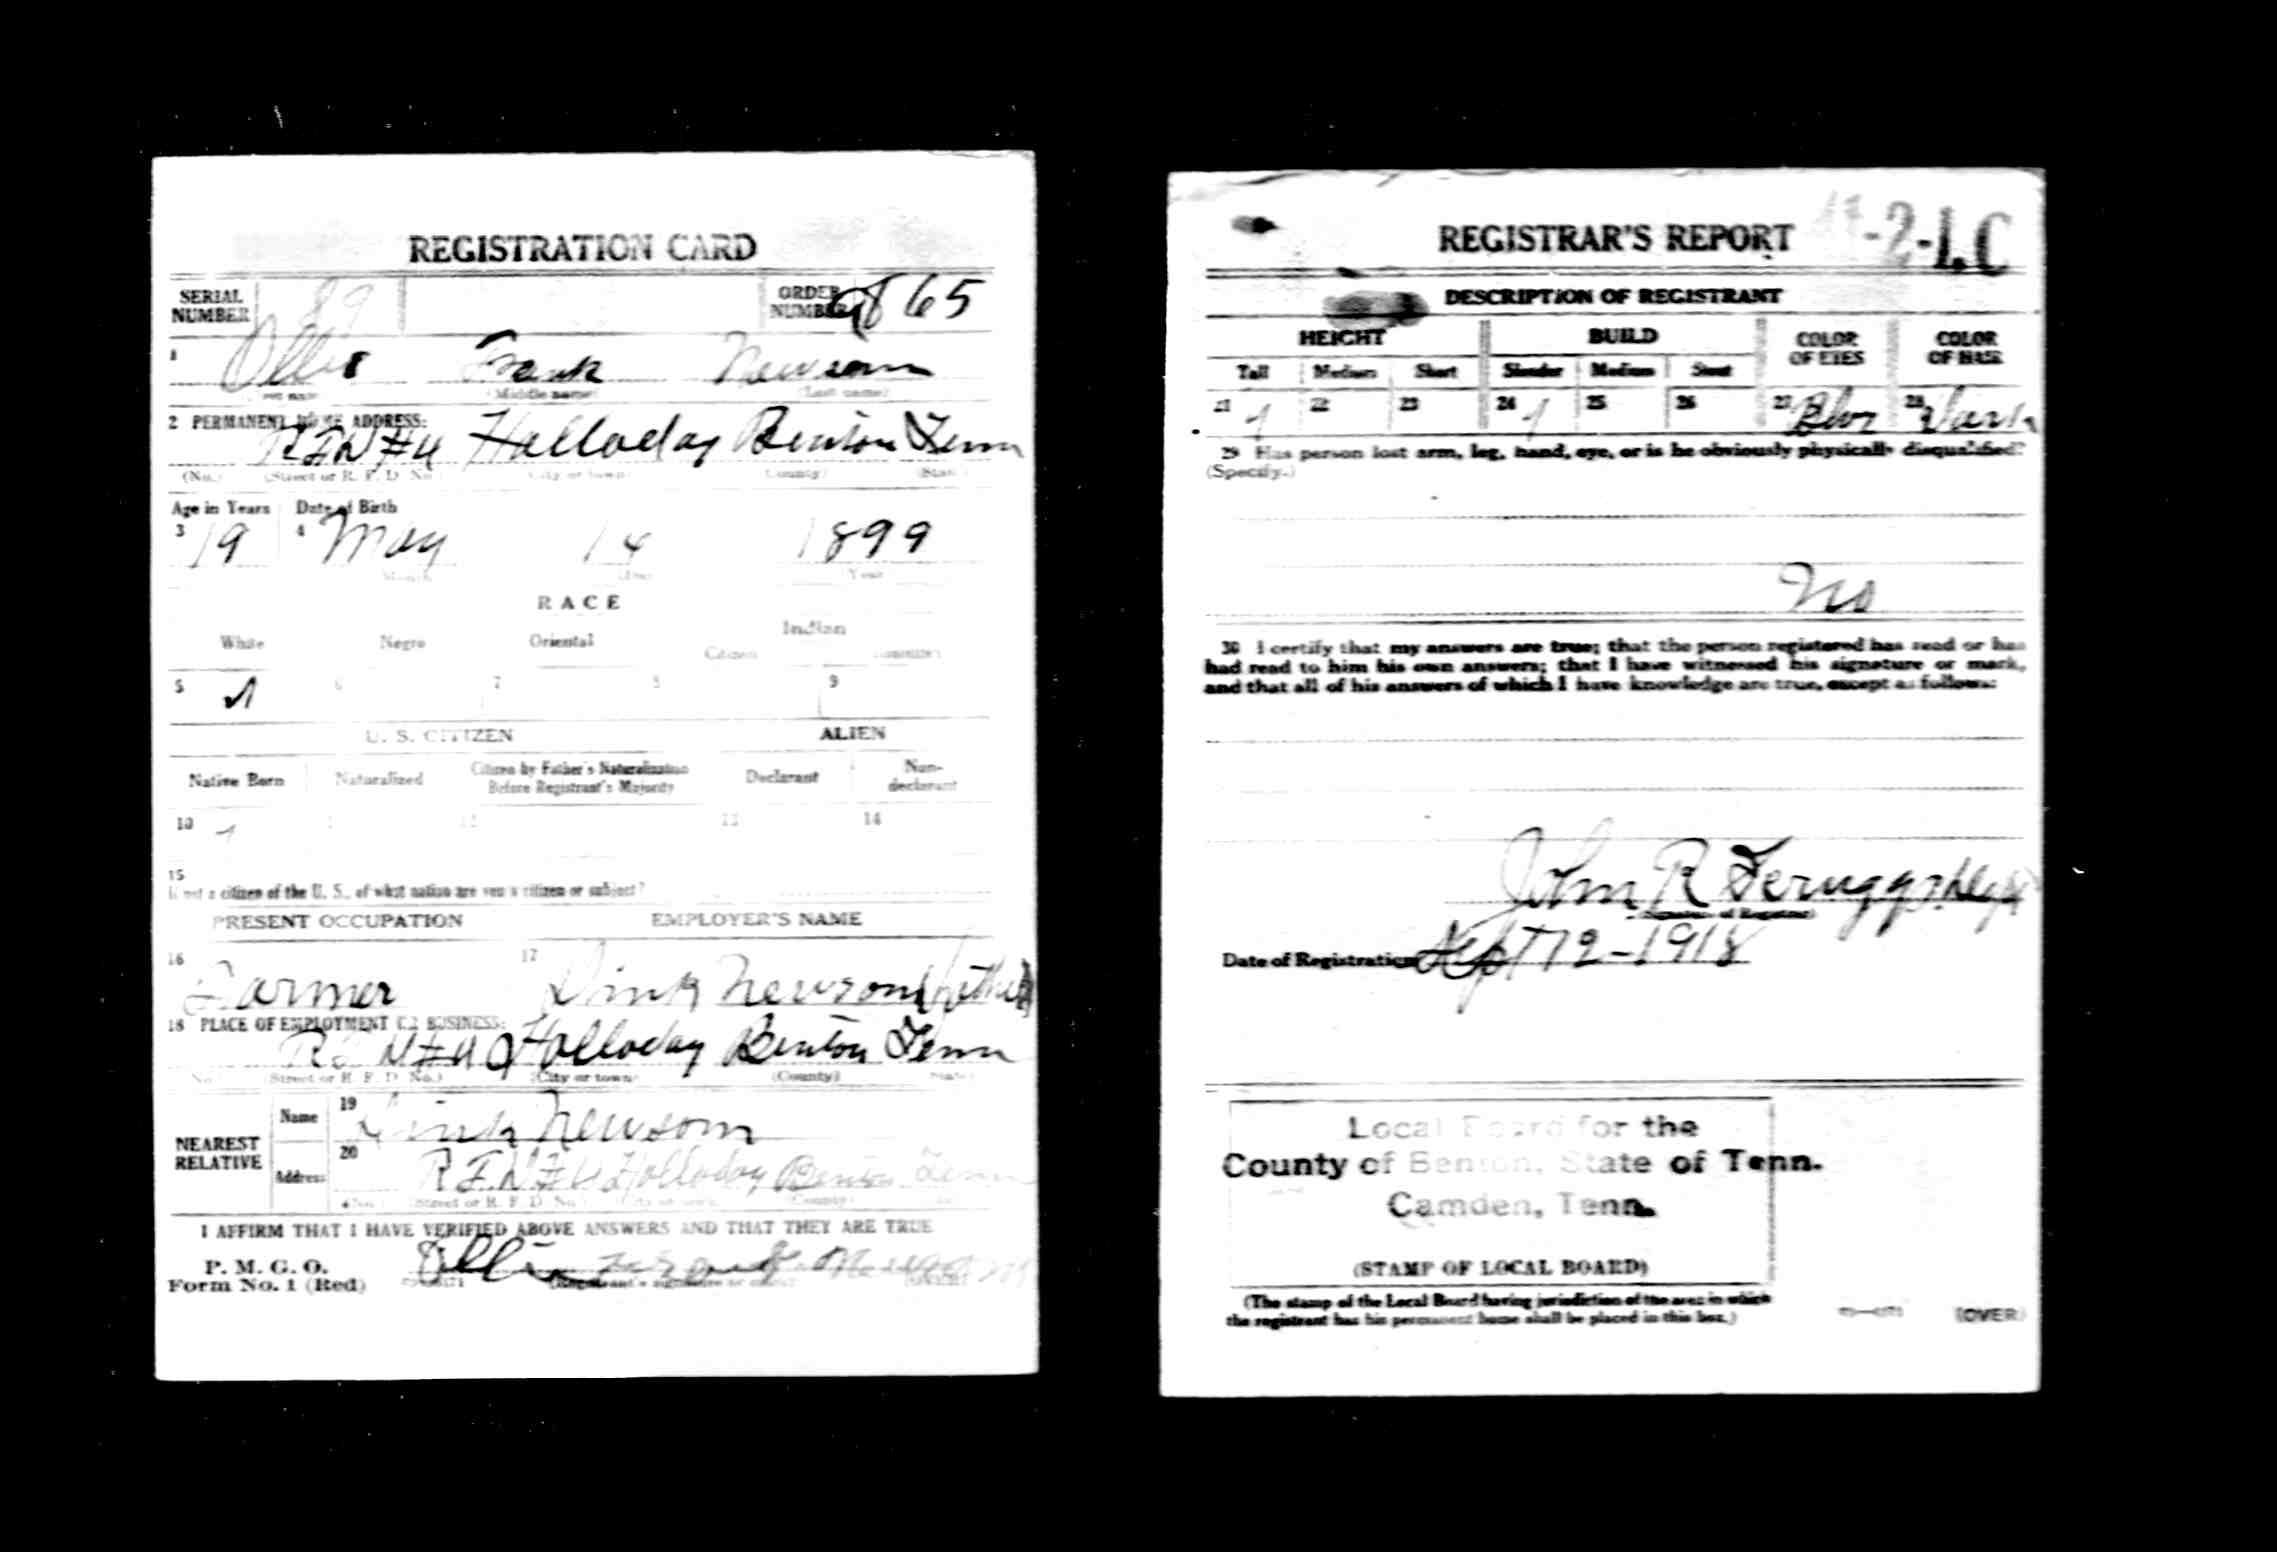 REGISTRATION CARD
SERIAL NUMBER 89 ORDER NUMBER 65
1 Ollie Frank Newsom
(Middle name) (Last name)
2 PERMANENT HOME ADDRESS:
R F D #4 Holladay Benton Tenn
(No.) (Street or R. F. D. No.) (City or town) (County) (State)
Age in Years Date of Birth
3 19 4 May 14 1899
Month Day Year
RACE
White Negro Oriental Indian
Citizen
5 6 7 8 9
U. S. CITIZEN ALIEN
Native Born Naturalized Citizen by Father's Naturalization Before Registrant's Majority Declarant Non-declarant
10 12 13 14
15
If not a citizen of the U. S., of what nation are you a citizen or subject?
PRESENT OCCUPATION EMPLOYER'S NAME
16 Farmer 17 Dink Newsom (father)
18 PLACE OF EMPLOYMENT OR BUSINESS:
R F D #4 Holladay Benton Tenn
(No.) (Street or R. F. D. No.) (City or town) (County) (State)
NEAREST RELATIVE
Name 19 Dink Newsom
Address 20 R F D #4 Holladay Benton Tenn
(No.) (Street or R. F. D. No.) (City or town) (County)
I AFFIRM THAT I HAVE VERIFIED ABOVE ANSWERS AND THAT THEY ARE TRUE
P. M. G. O.
Form No. 1 (Red) Ollie Frank Newsom
(Registrant's signature or mark)
REGISTRAR'S REPORT
-2-1.C
DESCRIPTION OF REGISTRANT
HEIGHT BUILD COLOR OF EYES COLOR OF HAIR
Tall Medium Short Slender Medium Stout
21 22 23 24 25 26 27 Blue 28 Dark
29 Has person lost arm, leg, hand, eye, or is he obviously physically disqualified?
(Specify.)
No
30 I certify that my answers are true; that the person registered has read or has
had read to him his own answers; that I have witnessed his signature or mark,
and that all of his answers of which I have knowledge are true, except as follows:
John R
(Signature of Registrar)
Date of Registration Sept 12-1918
Local Board for the
County of Benton, State of Tenn.
Camden, Tenn.
(STAMP OF LOCAL BOARD)
(The stamp of the Local Board having jurisdiction of the area in which
the registrant has his permanent home shall be placed in this box.)
(OVER)